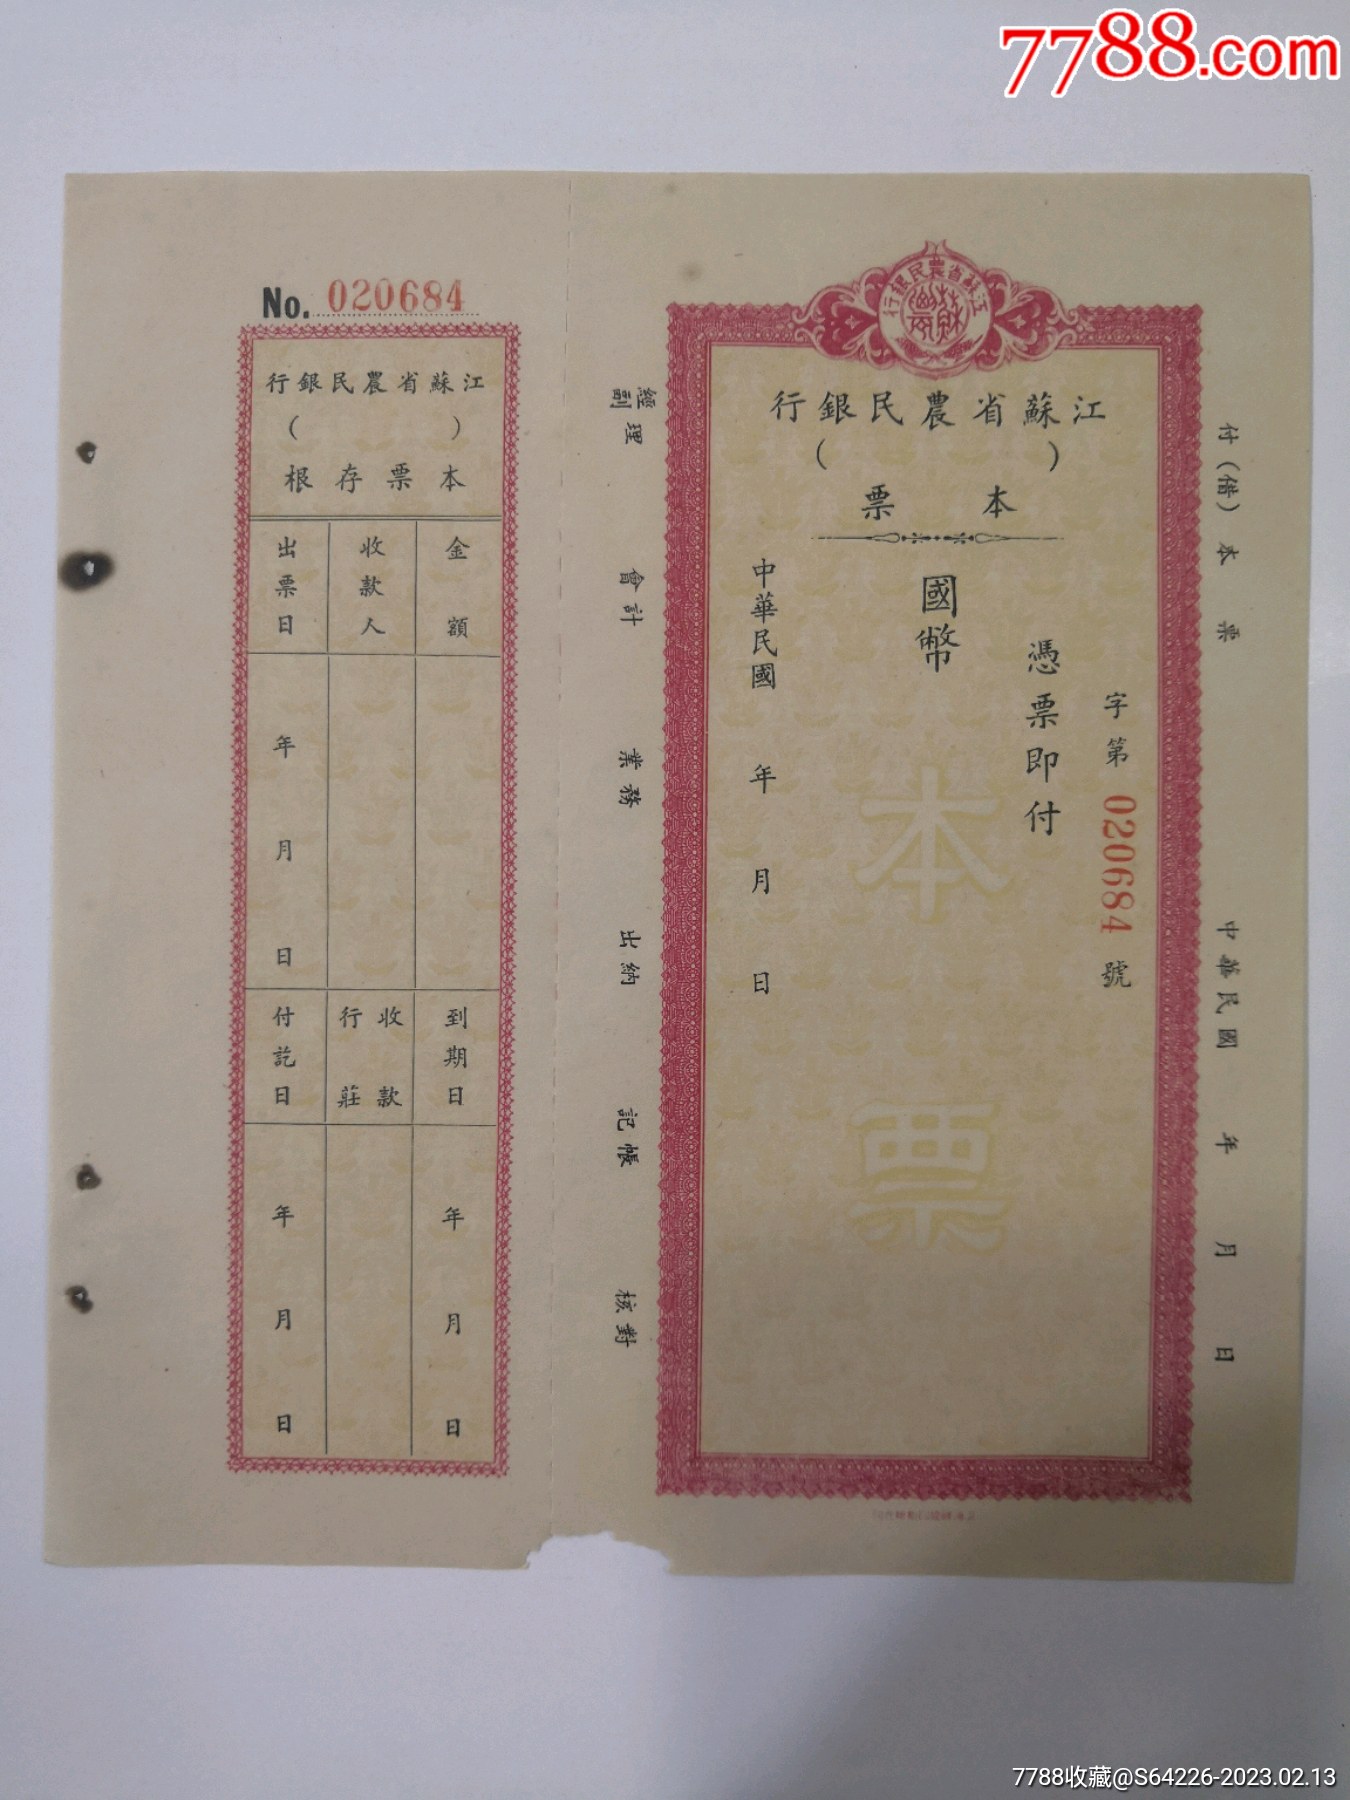 7788.com
No. 020684
江蘇省農民銀行
(　　　　)
本票存根
金額
收款人
出票日
年　月　日
到期日
收款行莊
付訖日
年　月　日
年　月　日
江蘇省農民銀行
蘇農
江蘇省農民銀行
(　　　　)
本票
字第 020684 號
憑票即付
國幣
中華民國　年　月　日
本票
付(借)本票　中華民國　年　月　日
經副理　會計　業務　出納　記帳　核對
7788收藏@S64226-2023.02.13